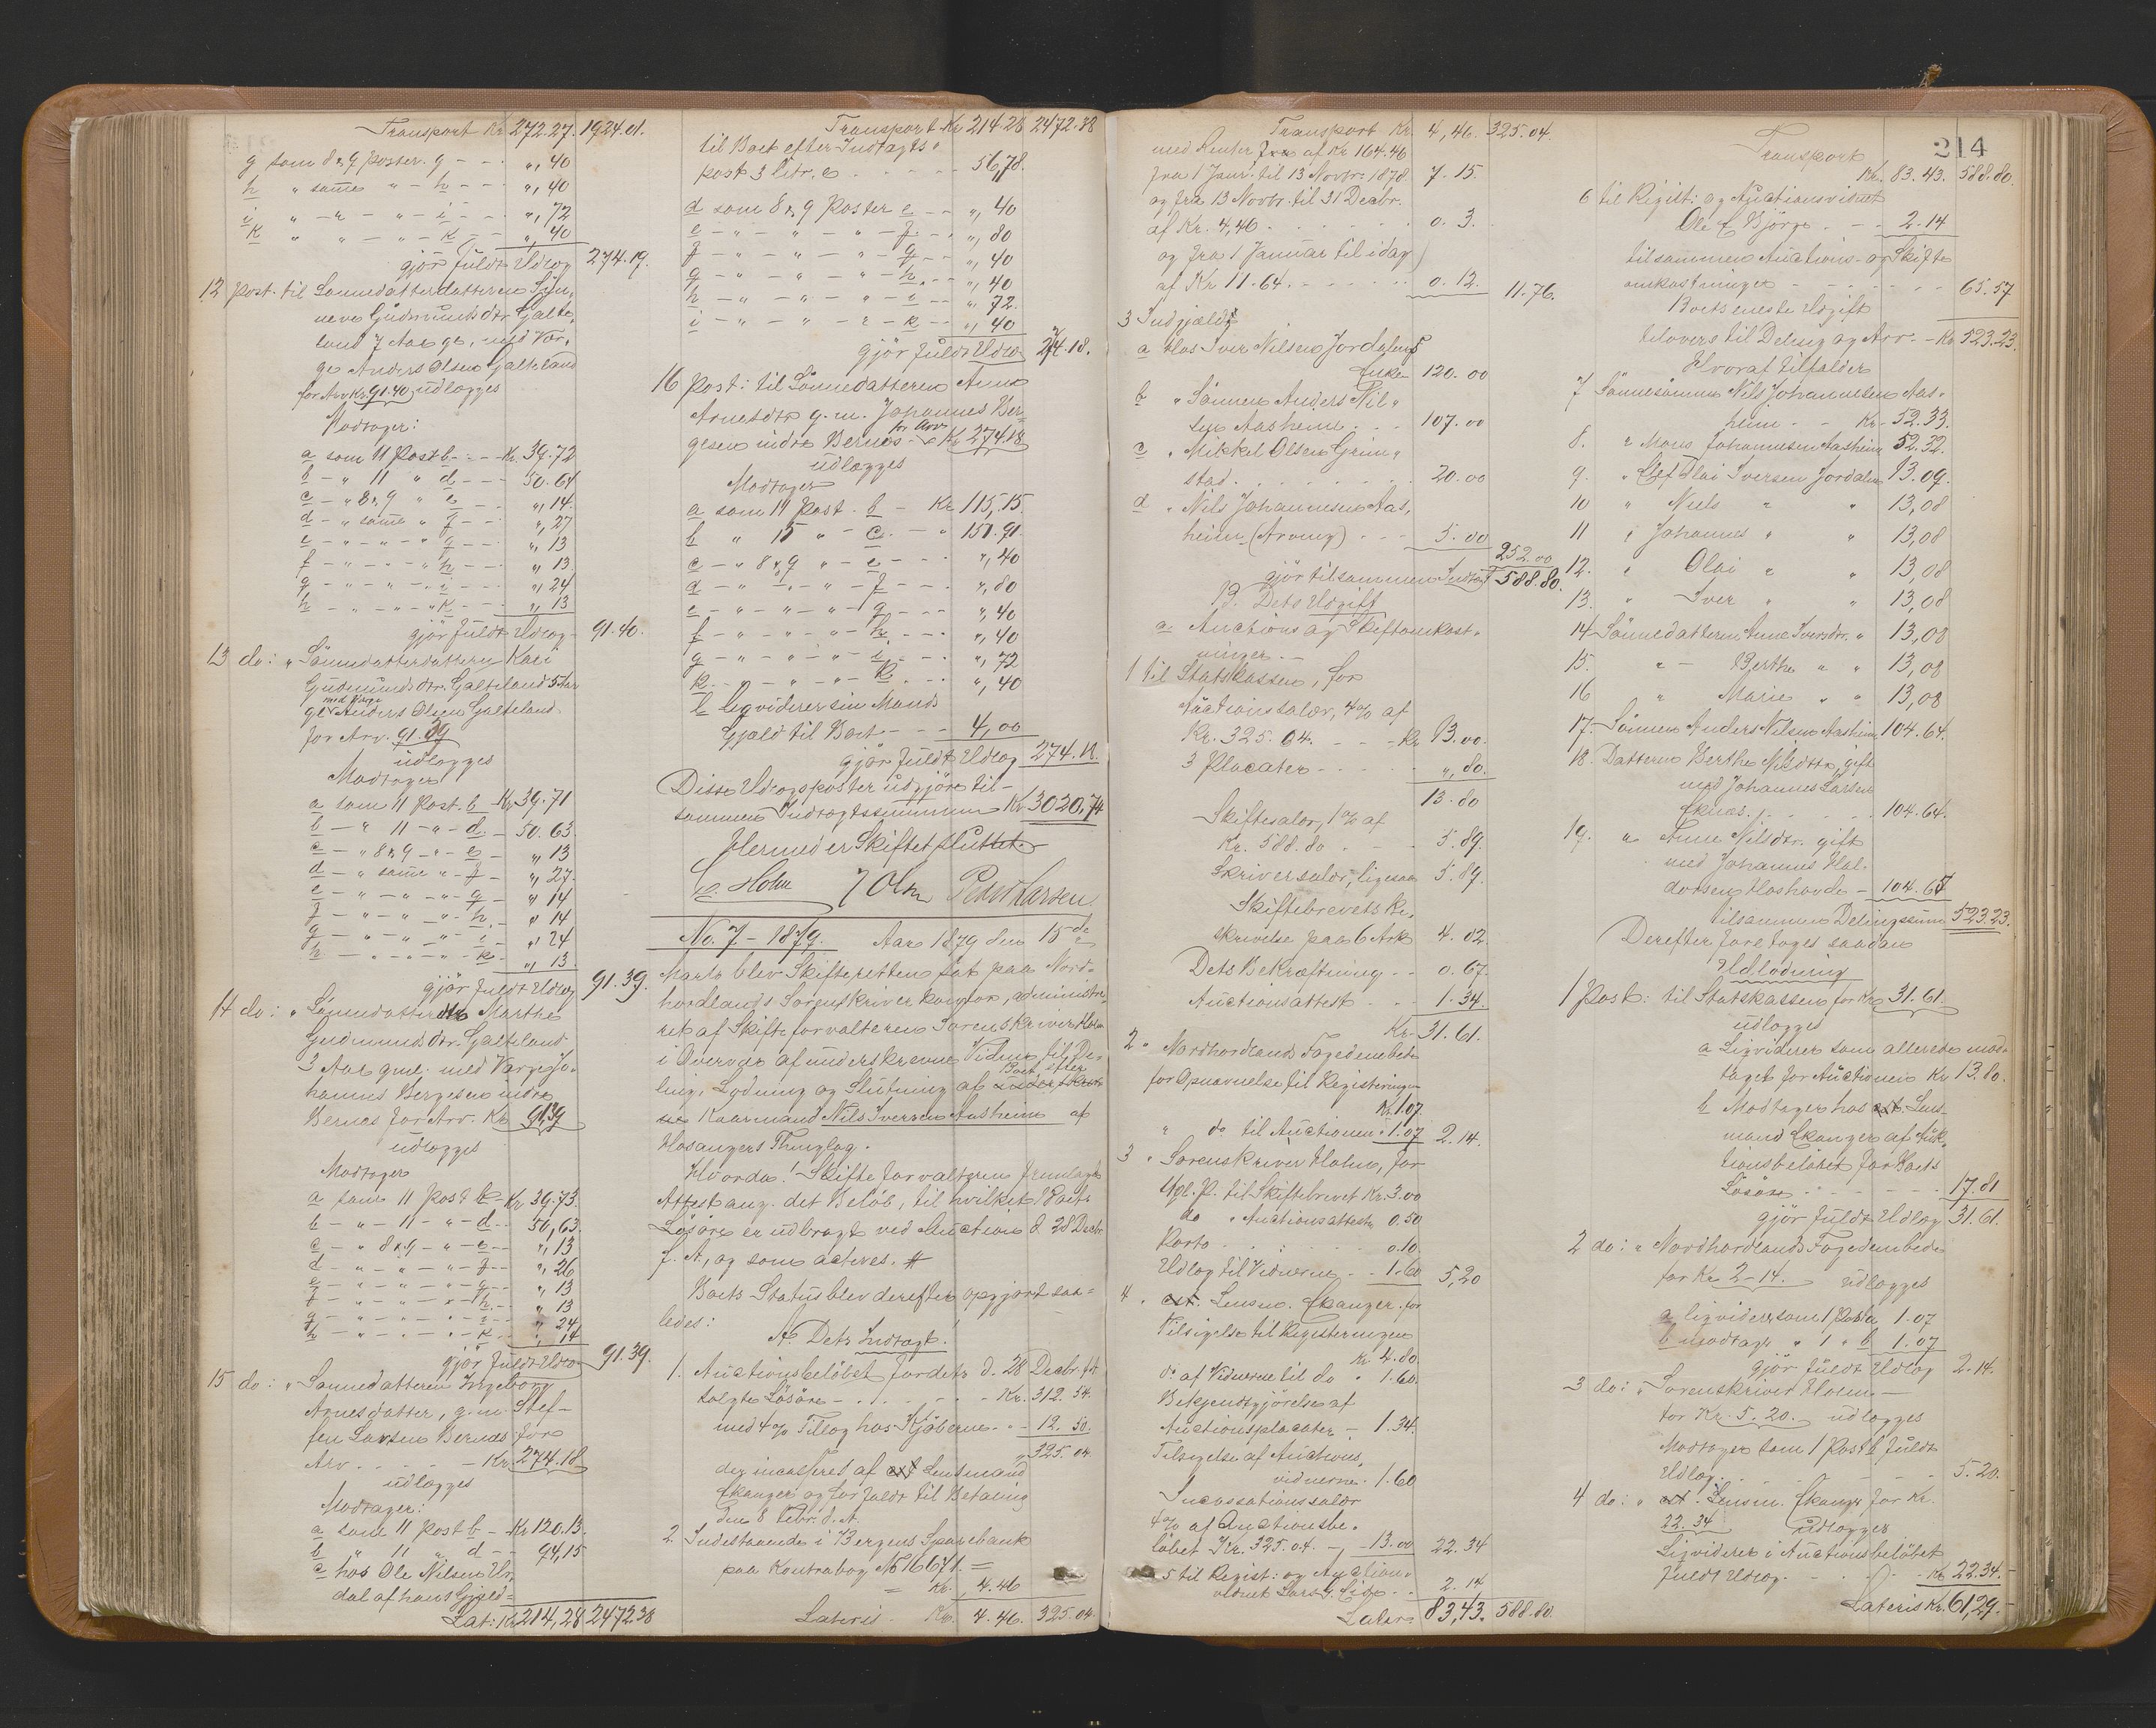 Transport Kr. 272.27. 1924.01.
g som 8 & 9 poster. g - - „, 40
h „ samme „ - h - - „, 40
i „ - „ - „ - i - - „, 72
k „ „ - „ - k - - „, 40
gjör fuldt Udlæg 274.19.
12 post. til Sönnedatterdatteren
Gudmundsdtr. Galte-
land 7 Aar gl., med Vær-
ge Anders Olsen Galteland
for Arv Kr. 91.40 udlægges
Modtager:
a som 11 Post b - - Kr. 39.72
b - „ 11 „ d - - 50.64
c - „ 8 & 9 „ e - - „, 14.
d - „ samme „ f - - „, 27
e - „ - „ - „ g - - „, 13
f - „ - „ - „ h - - „, 13.
g - „ - „ - „ i - - „, 24
h - „ - „ - „ k - - „, 13
gjör fuldt Udlæg - 91.40.
13 do: „ Sönnedatterdatteren Kari
Gudmundsdtr. Galteland 5 Aar
gl. med Værge Anders Olsen Galteland
for Arv. 91.39
udlægges
Modtager
a som 11 Post. b - Kr. 39.71
b - „ 11 - „ - d. - 50.63.
c - „ 8 & 9 - „ - e - „, 13
d - „ samme „ - f - „, 27.
e - „ - „ - „ - g - „, 14
f - „ - „ - „ - h - „, 14
g - „ - „ - „ - i - „, 24
h - „ - „ - „ - k - „, 13.
gjör fuldt Udlæg 91.39.
14 do: „ Marthe
Gudmundsdtr. Galteland
3 Aar gml. med Værge Jo-
hannes Bergesen indre
Bernæs for Arv. Kr. 91.39
udlægges
Modtager
a som 11 Post b - Kr. 39.73.
b - „ - 11 - „ - d - 50,63.
c - „ 8 & 9 - „ - e - „, 13
d - „ - „ - „ - f - „, 26
e - „ - „ - „ - g - „, 13
f - „ - „ - „ - h - „, 13
g - „ - „ - „ - i - „, 24
h - „ - „ - „ - k - „, 14
gjör fuldt Udlæg 91.39.
15 do: „ Sönnedatteren Ingeborg
Arnesdatter, g. m. Stef-
fen Larsen Bernæs for
Arv . . . . - Kr. 274.18
udlægges
Modtager:
a som 11 post b - Kr. 120.13.
b „ 11 „ d - - 94,15
c hos Ole Nilsen
dal af hans Gjæld =
Lat: Kr. 214,28 2472.38
Transport Kr. 214.28 2472.38
til Boet efter Indtægts-
post 3 litr. e . . . . . 56,78.
d som 8 & 9 Poster e - - „, 40
e - „ - „ - „ - f - - „, 80
f - „ - „ - „ - g - - „, 40
g - „ - „ - „ - h - - „, 40
h - „ - „ - „ - i - - „, 72.
i - „ - „ - „ - k - - „, 40
gjör fuldt Udlæg 274.18.
16 post: til Sönnedatteren Anna
Arnesdtr g. m. Johannes Ber-
gesen indre Bernæs for Arv Kr. 274.18
udlægges
Modtager
a som 11 Post. b - Kr. 115,15.
b „ 15 „ - c. - „ 151.91.
c - „ 8 & 9 „ - e - - - „, 40
d - „ - „ - „ - f - - - „, 80
e - „ - „ - „ - g - - - „, 40
f - „ - „ - „ - h - - - „, 40
g - „ - „ - „ - i - - - „, 72
k - „ - „ - „ - k - - - „, 40
l liqviderer sin Mands
Gjæld til Boet - - - 4,00
gjör fuldt Udlæg 274.18.
Disse Udlægsposter udgjöre til-
sammen Indtægtssummen Kr. 3020,74
Hermed er Skiftet sluttet
C. Holm J Olsen Peder Larsen
No. 7 - 1879. Aar 1879 den 15de
Marts blev Skifteretten sat paa Nord-
hordlands Sorenskriverkontor, administre-
ret af Skifteforvalteren Sorenskriver Holm
i Overvær af underskrevne Vidner til De-
ling, Lodning og Slutning af Boet efter
Kaarmand Nils Iversen Aasheim af
Hosangers Thinglag.
Hvorda! Skifteforvalteren fremlagde
Attest ang. det Belöb, til hvilket Boets
Lösöre er udbragt ved Auction d. 28 Decbr.
f. A., og som acteres. #
Boets Status blev derefter opgjort saa-
ledes:
A. Dets Indtægt.
1. Auctionsbelöbet for det d. 28 Decbr. f. A.
solgte Lösöre - . . . - - Kr. 312.54.
med 4% Tillæg hos Kjöberne - „ - 12.50.
„ 325.04.
der incasseret af Lensmand
Ekanger og forfaldt til Betaling
den 8 Febr. d. A.
2. Indestaaende i Bergens Sparebank
paa Kontrabog No 16671. =
= Kr. 4.46
Lateris - Kr. 4.46. 325.04.
Transport Kr. 4,46. 325.04.
med Renter af Kr. 164.46
fra 1 Janr. til 13 Novbr. 1878 7.15.
og fra 13 Novbr. til 31 Decbr.
af Kr. 4,46 . . . . . 0.3.
og fra 1 Januar til idag
af Kr 11.64. - - . . . . 0.12. 11.76.
3 Indgjæld:
a Hos Iver Nilsen Jordalens
Enke 120.00
b „ Sönnen Anders Nil-
sen Aasheim . . . 107.00
c „ Mikkel Olsen Grim-
stad . . . . . . . 20.00
d „ Nils Johannesen Aas-
heim (Arving) . - - 5.00 252.00
gjör tilsammen Indtægt 588.80.
B. Dets Udgift
a Auctions og Skifteomkost-
ninger. -
1 til Statskassen, for
Auctionssalær, 4% af
Kr. 325.04. - - - Kr. 13.00.
3 Placater - - . . . „, 80.
13.80
Skiftesalær, 1% af
Kr. 588.80 . - . 5.89.
Skriversalær, ligesaa 5.89.
Skiftebrevets Be-
skrivelse paa 6 Ark 4.02.
Dets Bekræftning . . 0.67.
Auctionsattest . . . 1.34.
Kr. 31.61.
2 „ Nordhordlands Fogedembede
for Opnævnelse til Registeringen
Kr. 1.07
„ do til Auctionen „ 1.07 2.14.
3 „ Sorenskriver Holm, for
til Skiftebrevet Kr. 3.00
do „ Auctionsattest 0.50
Porto . . . . . . 0.10.
Udlæg til Vidnerne - - 1.60 5,20
4 „ Lensm. Ekanger for
Tilsigelse til Registeringen
Kr. 4.80.
do af Vidnerne til do „ 1.60.
Bekjendtgjörelse af
Auctionsplacater - 1.34.
Tilsigelse af Auctions-
vidnerne. 1.60
Incassationssalær
4% af Auctionsbe-
löbet Kr. 325.04. - „ - 13.00 22.34
5 til Regist: og Auctions-
vidnet Lars . . 2.14
Latus 83,43. 588.80.
214
Transport
Kr. 83.43. 588.80.
6 til Regist: og Auctionsvidnet
Ole Björge . - - 2.14
tilsammen Auctions- og Skifte
omkostninger - - . . . . 65.57
Boets eneste Udgift
tilovers til Deling og Arv. - Kr. 523.23.
Hvoraf tilfalder
7 Sönnesönnen Nils Johannesen Aas-
heim - - Kr. 52.33.
8. „ Mons Johannesen Aasheim 52.32.
9. „ Olai Iversen Jordalen 13.09.
10 „ Niels „ „ 13,08
11 „ Johannes „ „ 13,08
12. „ Olai „ „ 13,08
13. „ Iver „ „ 13,08
14 Sönnedatteren Anne Iversdtr. „ 13,08
15. „ - Berthe „ „ 13,08
16 „ Marie „ „ 13,08
17. Sönnen Anders Nilsen Aasheim 104.64.
18. Datteren Berthe Nilsdtr, gift
med Johannes Larsen
Eknæs. . . . . . . 104.64.
19. „ Anne Nilsdtr. gift
med Johannes Hal-
dorsen - 104.67
tilsammen Delingssum 523.23.
Derefter foretoges saadan
Udlodning
1 Post: til Statskassen for Kr. 31.61.
udlægges
a Liqviderer som allerede mod-
taget for Auctionen Kr 13.80.
b Modtager hos Lens-
mand Ekanger af Auk-
tionsbelöbet for Boets
Lösöre . . . - - - 17.81
gjör fuldt Udlæg 31.61.
2 do: „ Nordhordlands Fogedembede
for Kr. 2-14. udlægges
a liqviderer som 1 Post a 1.07
b modtager „ 1 „ b 1.07
gjör fuldt Udlæg 2.14.
3 do: „ Sorenskriver Holm -
for Kr. 5.20. udlægges
Modtager som 1 Post b fuldt
Udlæg . . . . - - - 5.20.
4 do: „ Lensm. Ekanger for Kr.
22.34 udlægges
Liqviderer i Auctionsbelöbet
fuldt Udlæg . - . . - Kr. 22.34.
Lateris Kr. 61,29.